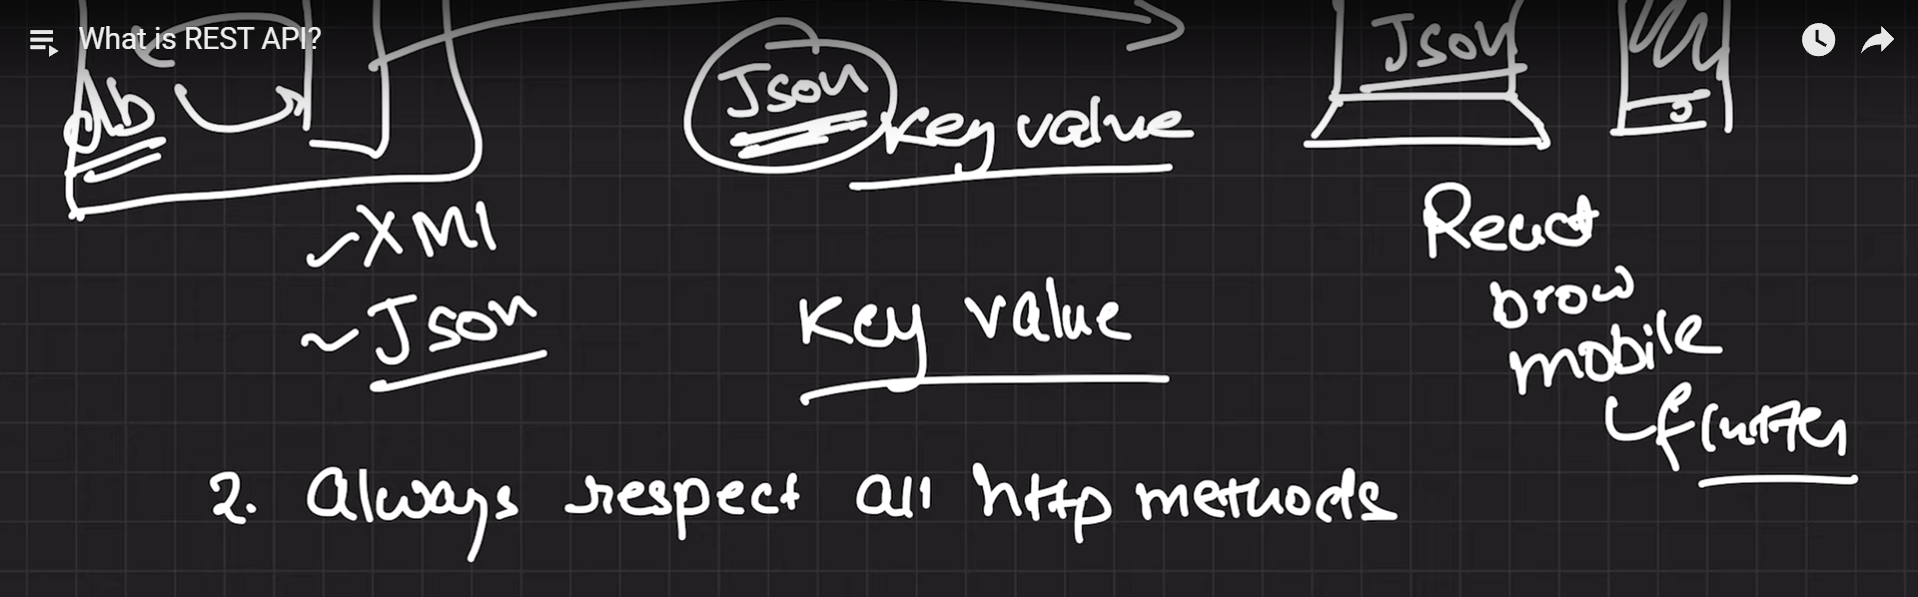 What is REST API?
Json
db
Json
key value
XMl
React
Json
key value
brow
mobile
flutter
2. Always respect all http methods